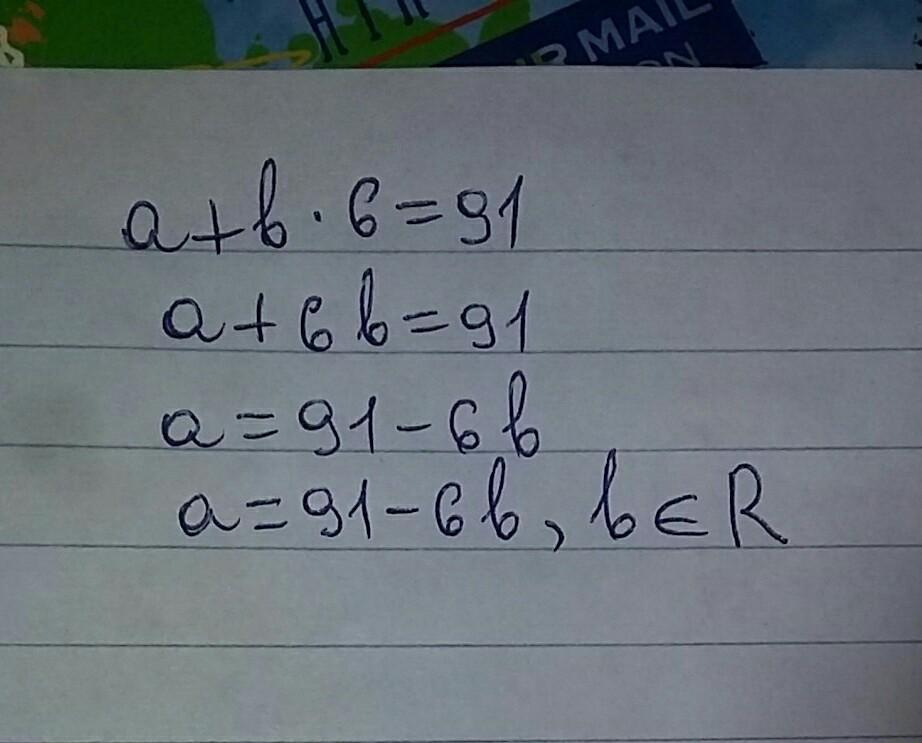 MAIL
ON
a+b·6=91
a+6b=91
a=91-6b
a=91-6b, b∈R